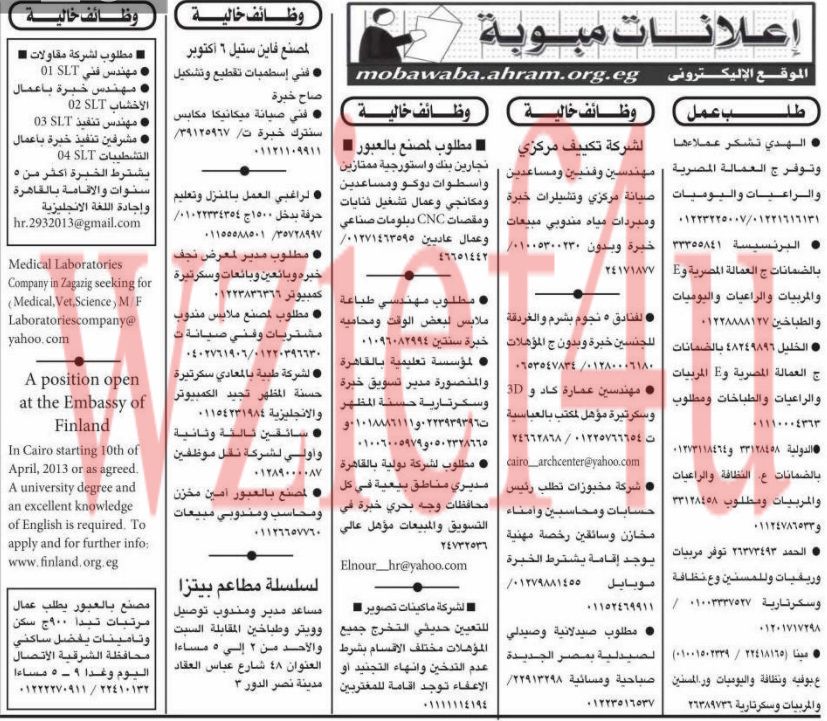 إعلانات مبوبة
الموقع الإليكترونى mobawaba.ahram.org.eg
طلب عمل
● الهدي تشكر عملاءها
وتوفر ج العمالة المصرية
والراعيات واليوميات
٠١٢٢٣٢٢٥٠٠٧/٠١٢٢١٦١٦١٣١
● البرنسيسة ٣٣٣٥٥٨٤١
بالضمانات ج العمالة المصرية وE
والمربيات والراعيات واليوميات
والطباخين ٠١٢٢٨٨٨٨١٢٧
● الخليل ٤٨٢٤٩٨٩٦ بالضمانات
ج العمالة المصرية وE المربيات
والراعيات والطباخات ومطلوب
٠١١١٠٠٠٤٣٦٣
●الدولية ٣٣١٢٨٤٥٨ و٠١٢٧٣١١٨٤٦٤
بالضمانات ع. النظافة والراعيات
والمربيات ومطلوب ٣٣١٢٨٤٥٨
و٠١١٢٤٧٨٦٥٣٣
● الحمد ٢٦٣٧٣٤٩٣ توفر مربيات
وريفيات وللمسنين وع نظافة
وسكرتارية ٠١٠٠٣٣٣٧٥٢٧ /
٠١٢٠١٧١٧٢٩٨
● مينا (٢٢٤١٨١٦٥ / ٠١٠٠١٥٠٢٣٣٩)
ع بوفيه ونظافة واليوميات ور.المسنين
والمربيات وسكرتارية ٢٦٣٨٩٧٣٦
وظائف خالية
لشركة تكييف مركزي
مهندسين وفنيين ومساعدين
صيانة مركزي وتشيلرات خبرة
ومبردات مياه مندوبي مبيعات
خبرة وبدون ٠١٠٠٥٣٠٠٢٣٠/
٢٤١٧١٨٧٧
● لفنادق ٥ نجوم بشرم والغردقة
للجنسين خبرة وبدون ج المؤهلات
٠١٢٨٠٠٠٦١٨٠/ ٠٦٥٣٥٤٧٨٣٤
● مهندسين عمارة كاد و 3D
وسكرتيرة مؤهل لمكتب بالعباسية
ت ٠١٢٢٥٧٦٦٦٥٤ / ٢٤٦٦٢٨٦٨
cairo_archcenter@yahoo.com
● شركة مخبوزات تطلب رئيس
حسابات ومحاسبين وأمناء
مخازن وسائقين رخصة مهنية
يوجد إقامة يشترط الخبرة
موبايل ٠١٢٧٩٨٨١٤٥٥/
٠١١٥٢٤٦٩٩١١
● مطلوب صيدلانية وصيدلي
لصيدلية بمصر الجديدة
صباحية ومسائية ٢٢٩١٣٢٩٨/
٠١٢٢٣٥١٦٥٣٧
وظائف خالية
■ مطلوب لمصنع بالعبور ■
نجارين بنك واستورجية ممتازين
واسطوات دوكو ومساعدين
ومكانجي وعمال تشغيل ثنايات
ومقصات CNC دبلومات صناعي
وعمال عاديين ٠١٢٧١٤٦٣٥٩٥/
٤٦٦٥١٤٤٢
● مطلوب مهندسي طباعة
ملابس لبعض الوقت ومحاميه
خبرة سنتين ٠١٠٩٦٠٨٢٩٩٤
● لمؤسسة تعليمية بالقاهرة
والمنصورة مدير تسويق خبرة
وسكرتارية حسنة المظهر
ت٠٢٢٣٩٣٩٣٩٦ و٠١٠١٨٨٨٦١١١
و٠٥٠٢٣٢٨٦٦٥ و٠١٠٠٦٠٠٥٩٧٩
● مطلوب لشركة دولية بالقاهرة
مديري مناطق بيعية في كل
محافظات وجه بحري خبرة في
التسويق والمبيعات مؤهل عالي
٢٤٧٣٢٥٣٦
Elnour_hr@yahoo.com
■ لشركة ماكينات تصوير ■
للتعيين حديثي التخرج جميع
المؤهلات مختلف الاقسام بشرط
عدم التدخين وإنهاء التجنيد أو
الاعفاء توجد اقامة للمغتربين
٠١١١١١١٤١٩٤
وظائف خالية
لمصنع فاين ستيل ٦ أكتوبر
● فني إسطمبات تقطيع وتشكيل
صاج خبرة
● فني صيانة ميكانيكا مكابس
سنترك خبرة ت/ ٣٩١٢٥٩٦٧/
٠١١٢١١٠٩٩١١
● لراغبي العمل بالمنزل وتعليم
حرفة بدخل ١٥٠٠ج ٠١٠٢٢٣٣٤٣٥٤/
٣٥٧٢٨٩٩٧/ ٠١١٥٥٥٨٨٥٠١
● مطلوب مدير لمعرض نجف
خبره وبائعين وبائعات وسكرتيرة
كمبيوتر ٠١٢٢٣٨٣٦٣٦٦
● مطلوب لمصنع ملابس مندوب
مشتريات وفني صيانة ت
٠١٢٢٠٣٩٦٦٣٠/ ٠٤٠٢٧٦١٩٠٦
● لشركة طبية بالمعادي سكرتيرة
حسنة المظهر تجيد الكمبيوتر
والانجليزية ٠١١٥٤٢٣١٩٨٤
● سائقين ثالثة وثانية
وأولي لشركة نقل موظفين
٠١٢٨٩٠٠٠٠٨٧
● لمصنع بالعبور أمين مخزن
ومحاسب ومندوبي مبيعات
٠١١٢٦٦٥٧٧٦٠
لسلسلة مطاعم بيتزا
مساعد مدير ومندوب توصيل
وويتر وطباخين المقابلة السبت
والأحد من ٢ إلي ٥ مساءا
العنوان ٤٨ شارع عباس العقاد
مدينة نصر الدور ٣
وظائف خالية
■ مطلوب لشركة مقاولات ■
● مهندس فني SLT 01
● مهندس خبرة بأعمال
الأخشاب SLT 02
● مهندس تنفيذ SLT 03
● مشرفين تنفيذ خبرة بأعمال
التشطيبات SLT 04
يشترط الخبرة أكثر من ٥
سنوات والاقامة بالقاهرة
وإجادة اللغة الانجليزية
hr.2932013@gmail.com
Medical Laboratories
Company in Zagazig seeking for
(Medical,Vet,Science) M/F
Laboratoriescompany@
yahoo.com
A position open
at the Embassy of
Finland
In Cairo starting 10th of
April, 2013 or as agreed.
A university degree and
an excellent knowledge
of English is required. To
apply and for further info:
www.finland.org.eg
مصنع بالعبور يطلب عمال
مرتبات تبدأ ٩٠٠ج سكن
وتأمينات يفضل ساكني
محافظة الشرقية الاتصال
اليوم وغدا ٩ – ٥ مساءا
٢٢٤١٠١٣٢ / ٠١٢٢٢٢٧٠٩١١
wzief4u